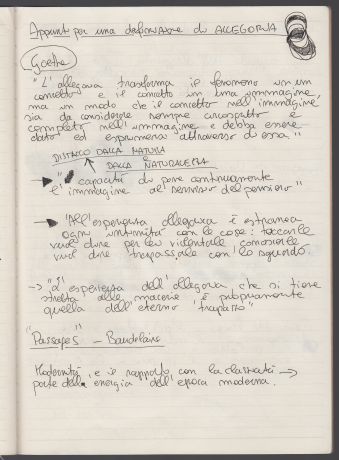 Appunti per una definizione di ALLEGORIA
Goethe
"L'allegoria trasforma il fenomeno in un
concetto e il concetto in una immagine,
ma in modo che il concetto nell'immagine
sia da considerare sempre circoscritto e
completo nell'immagine e debba essere
dato ed esprimersi attraverso di essa"
DISTACCO DALLA NATURA
e
DALLA NATURALEZZA
→ È "capacità di porre continuamente
l'immagine al servizio del pensiero"
→ "All'esperienza allegorica è estranea
ogni intimità con le cose: toccarle
vuol dire per lei violentarle conoscerle
vuol dire trapassarle con lo sguardo
→ "L'esperienza dell'allegoria che si tiene
stretta alle macerie è propriamente
quella dell'eterno trapasso"
"Passages" - Baudelaire
Modernità e il rapporto con la classicità →
parte della energia dell'epoca moderna.